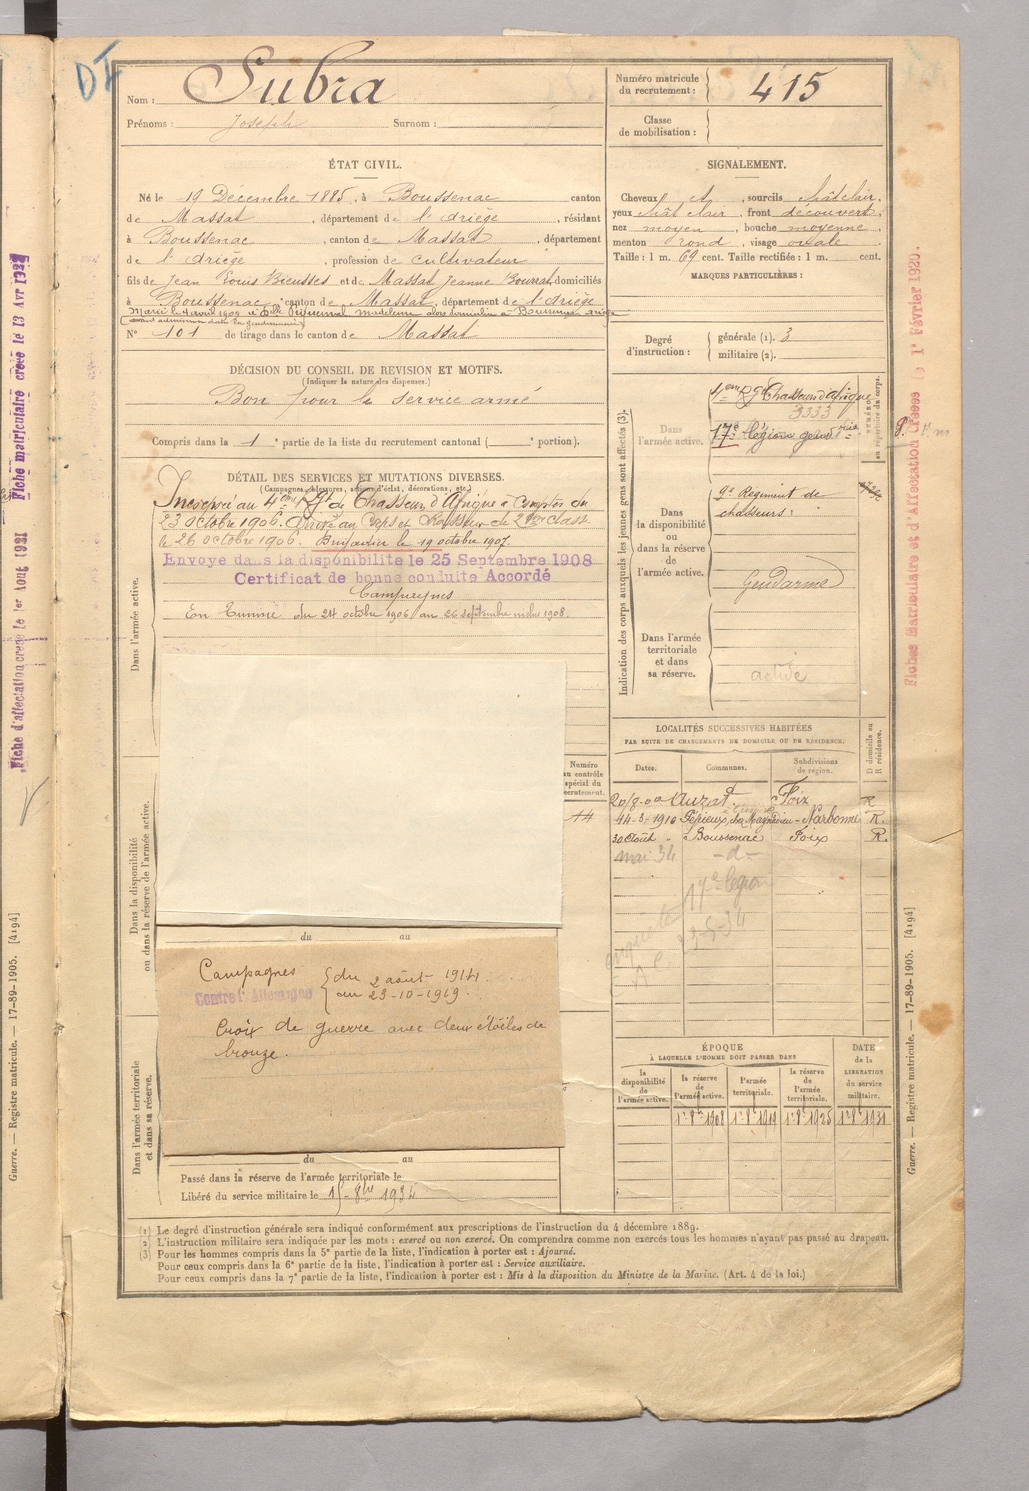 DI
Nom : Subra
Prénoms : Joseph Surnom :
Numéro matricule du recrutement : 415
Classe de mobilisation :
ÉTAT CIVIL.
Né le 19 Décembre 1885, à Boussenac canton
de Massat, département de l'Ariège, résidant
à Boussenac, canton de Massat, département
de l'Ariège, profession de cultivateur
fils de Jean Louis Bieusses et de Massat Jeanne Bourrat, domiciliés
à Boussenac, canton de Massat, département de l'Ariège
Marié le 4 avril 1909 à Elle Piquemal Madeleine
N° 101 de tirage dans le canton de Massat
SIGNALEMENT.
Cheveux et, sourcils chât clair,
yeux chât clair, front découvert,
nez moyen, bouche moyenne,
menton rond, visage ovale.
Taille : 1 m. 69 cent. Taille rectifiée : 1 m. cent.
MARQUES PARTICULIÈRES :
Degré d'instruction : générale (1). 3
militaire (2).
DÉCISION DU CONSEIL DE REVISION ET MOTIFS.
(Indiquer la nature des dispenses.)
Bon pour le service armé
Compris dans la 1 e partie de la liste du recrutement cantonal ( portion).
DÉTAIL DES SERVICES ET MUTATIONS DIVERSES.
(Campagnes, blessures, actions d'éclat, décorations, etc.)
Incorporé au 4ème Rgt de Chasseur d'Afrique à Compter du
23 octobre 1906. Arrivé au Corps et Chasseur de 2me Classe
le 26 octobre 1906. Brigadier le 19 octobre 1907
Envoyé dans la disponibilité le 25 Septembre 1908
Certificat de bonne conduite Accordé
Campagnes
En Tunisie du 24 octobre 1906 au 26 septembre inclus 1908.
Dans l'armée active.
Dans la disponibilité
ou dans la réserve de l'armée active.
Dans l'armée territoriale
et dans sa réserve.
Numéro au contrôle spécial du recrutement.
14
du au
Campagnes { du 2 août 1914
Contre l'Allemagne } au 23-10-1919.
Croix de guerre avec deux étoiles de
bronze.
du au
Passé dans la réserve de l'armée territoriale le
Libéré du service militaire le 1er 8bre 1934
Indication des corps auxquels les jeunes gens sont affectés (3).
NUMÉROS au répertoire du corps.
Dans l'armée active.
4ème Rgt Chasseurs d'Afrique
3333
17e légion gendrie
Dans la disponibilité ou dans la réserve de l'armée active.
9e Régiment de
chasseurs :
Gendarme
Dans l'armée territoriale et dans sa réserve.
active
LOCALITÉS SUCCESSIVES HABITÉES
PAR SUITE DE CHANGEMENTS DE DOMICILE OU DE RÉSIDENCE.
Dates. Communes. Subdivisions de région. D domicile ou R résidence.
Auzat Foix R
Narbonne R.
30 Août " Boussenac Foix R.
mai 34 -d-
17e légion
enquête
ÉPOQUE
À LAQUELLE L'HOMME DOIT PASSER DANS
DATE de la LIBÉRATION du service militaire.
la disponibilité de l'armée active.
la réserve de l'armée active.
l'armée territoriale.
la réserve de l'armée territoriale.
1er 8bre 1908 1er 8bre 1919 1er 8bre 1925 1er 8bre 1931
(1) Le degré d'instruction générale sera indiqué conformément aux prescriptions de l'instruction du 4 décembre 1889.
(2) L'instruction militaire sera indiquée par les mots : exercé ou non exercé. On comprendra comme non exercés tous les hommes n'ayant pas passé au drapeau.
(3) Pour les hommes compris dans la 5e partie de la liste, l'indication à porter est : Ajourné.
Pour ceux compris dans la 6e partie de la liste, l'indication à porter est : Service auxiliaire.
Pour ceux compris dans la 7e partie de la liste, l'indication à porter est : Mis à la disposition du Ministre de la Marine. (Art. 4 de la loi.)
Guerre. — Registre matricule. — 17-89-1905. [4194]
Guerre. — Registre matricule. — 17-89-1905. [4194]
Fiche matriculaire créée le 13 Avr 1927
Fiche d'affectation créée le 1er Aout 1931
Fiches Matriculaire et d'Affectation Créées le 1er Février 1920.